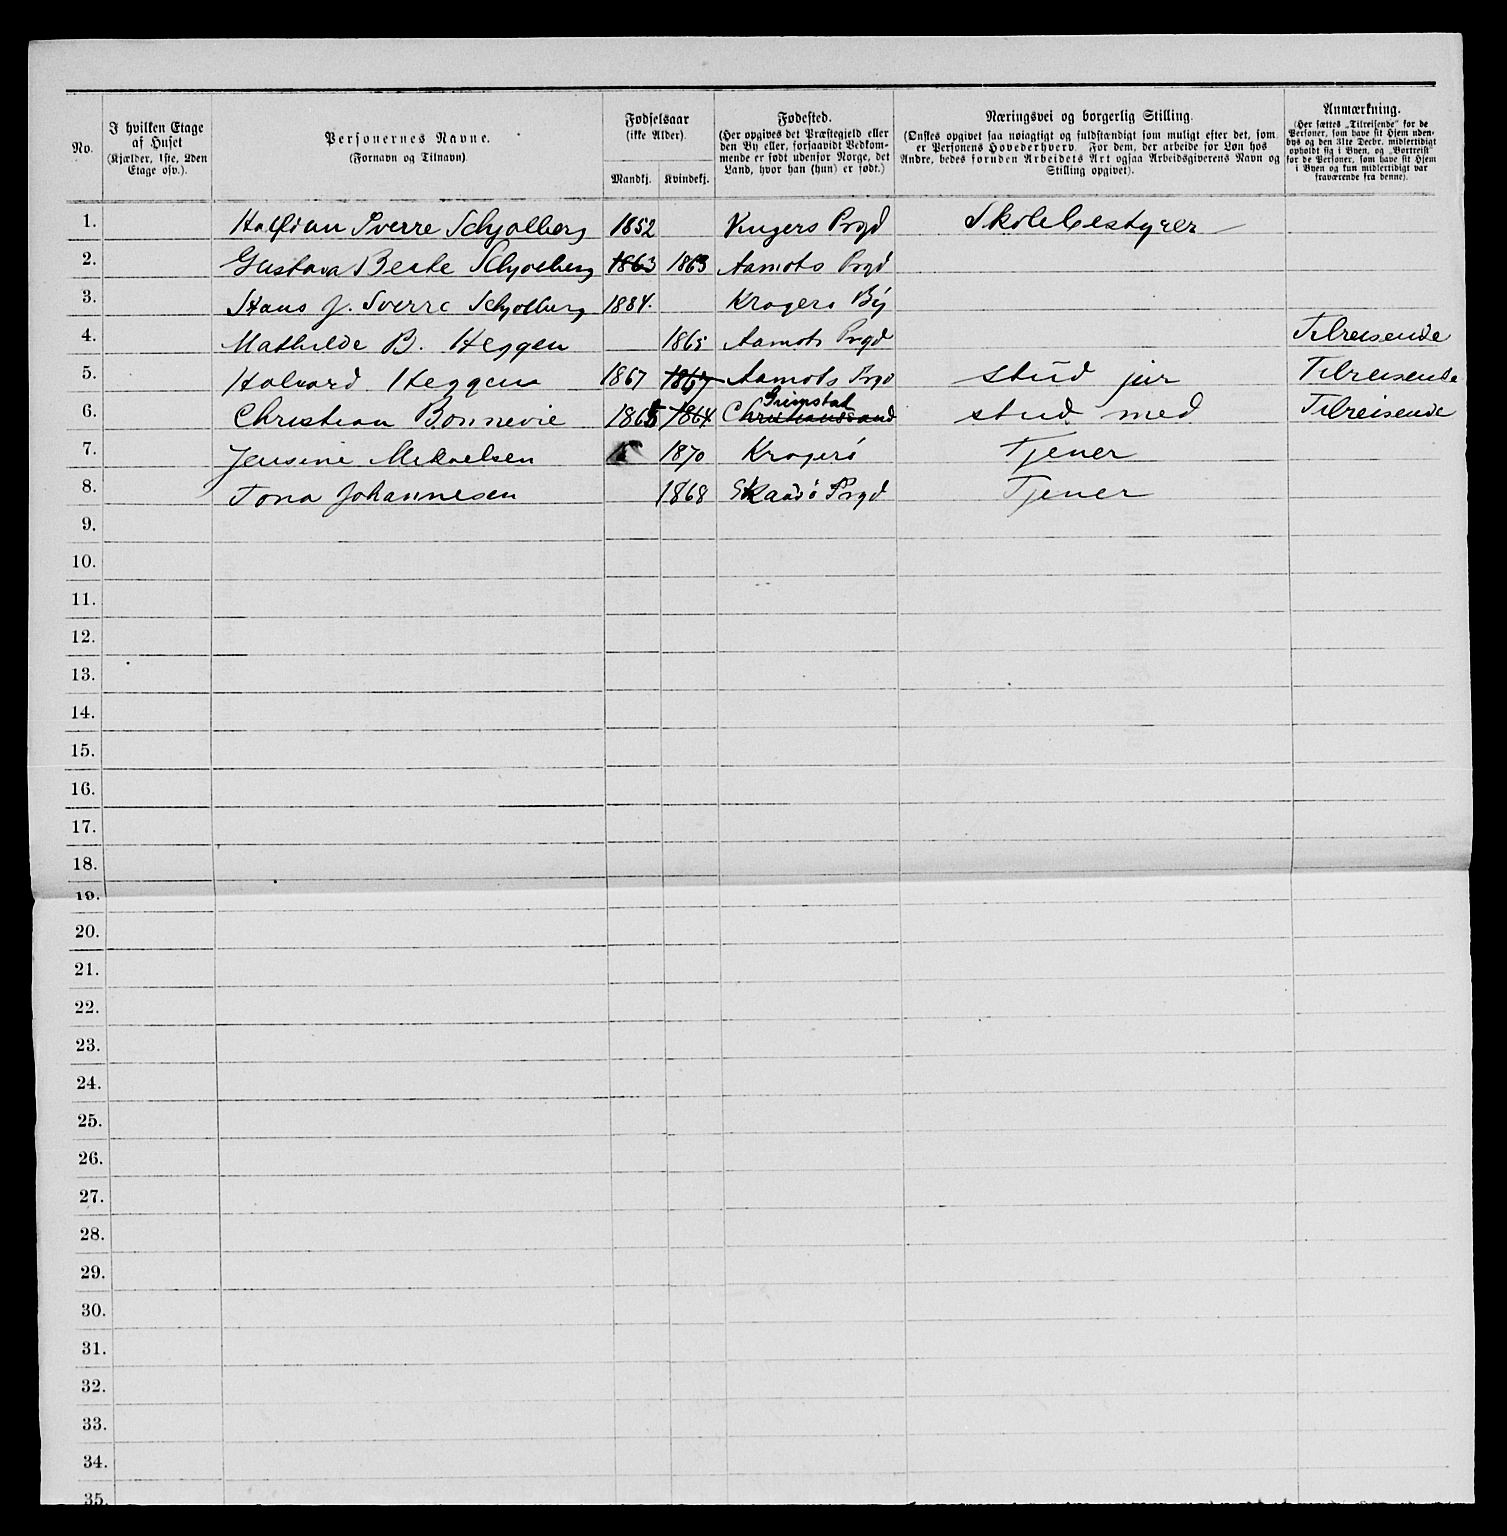 No.
I hvilken Etage
af Huset
(Kjælder, 1ste, 2den
Etage osv.).
Personernes Navne.
(Fornavn og Tilnavn)
Fødselsaar
(ikke Alder).
Mandkj.
Kvindekj.
Fødested.
(Her opgives det Præstegjeld eller
den By eller, forsaavidt Vedkom-
mende er født udenfor Norge, det
Land, hvor han (hun) er født.)
Næringsvei og borgerlig Stilling.
(Ønskes opgivet saa nøiagtigt og fuldstændigt som muligt efter det, som
er Personens Hovederhverv. For dem, der arbeide for Løn hos
Andre, bedes foruden Arbeidets Art ogsaa Arbeidsgiverens Navn og
Stilling opgivet).
Anmærkning.
(Her sættes „Tilreisende" for de
Personer, som have sit Hjem uden-
bys og den 31te Decbr. midlertidigt
opholdt sig i Byen, og „Bortreist"
for de Personer, som have sit Hjem
i Byen og kun midlertidigt var
fraværende fra denne).
1. Halfdan Sverre Schjølberg 1852 Prgd Skolebestyrer
2. Gustava Beate Schjølberg 1863 1863 Aamots Prgd
3. Hans J. Sverre Schjølberg 1884. Kragerø By
4. Mathilde B. Heggen 1865 Aamots Prgd Tilreisende
5. Halvard Heggen 1867 1867 Aamots Prgd stud jur Tilreisende
Grimstad
6. Christian Bonnevie 1865 1864 Christianssand stud. med. Tilreisende
7. Jensine Mikaelsen 1870 Kragerø Tjener
8. Tona Johannesen 1868 Skaadø Prgd Tjener
9.
10.
11.
12.
13.
14.
15.
16.
17.
18.
19.
20.
21.
22.
23.
24.
25.
26.
27.
28.
29.
30.
31.
32.
33.
34.
35.